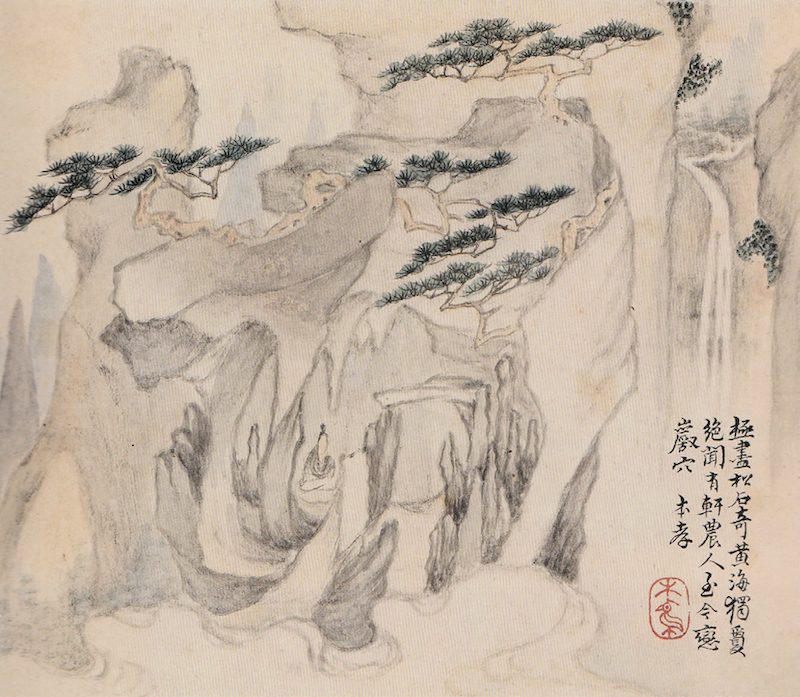 極盡松石奇黃海獨敻
絶聞有軒農人至今戀
巖穴 本孝